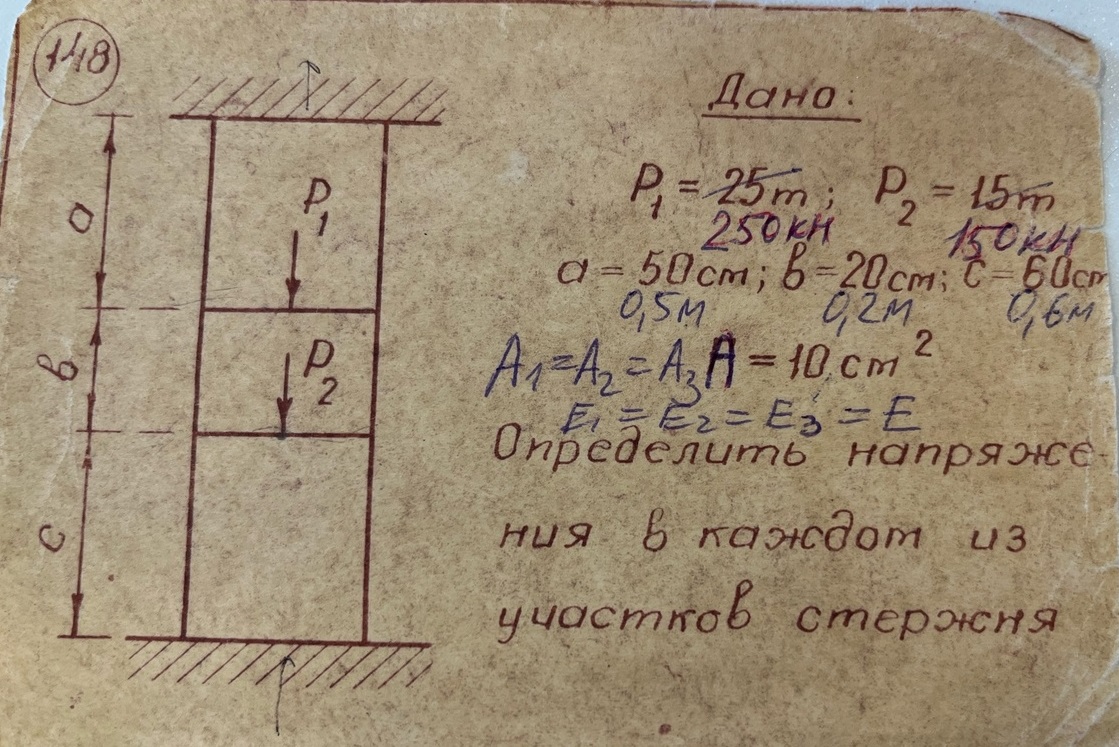 148
Дано:
P1 = 25т; P2 = 15т
250кн 150кн
a = 50 см; в = 20 см; c = 60 см
0,5м 0,2м 0,6м
A1 = A2 = A3 A = 10 см²
E1 = E2 = E3 = E
Определить напряже-
ния в каждом из
участков стержня
a
P1
в
P2
c